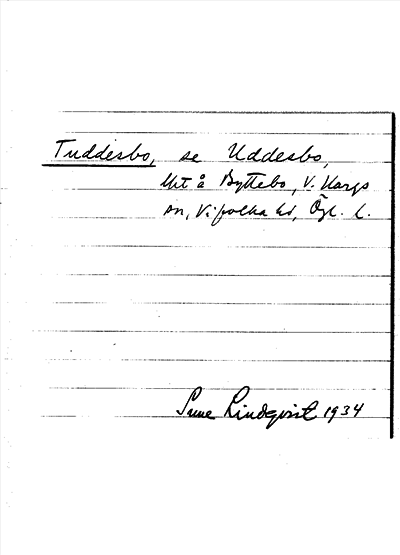 Tuddesbo, se Uddesbo,
Ut å Byttebo, V. Hargs
sn, Vifolka hd, Ögl. l.
Sune Lindqvist 1934